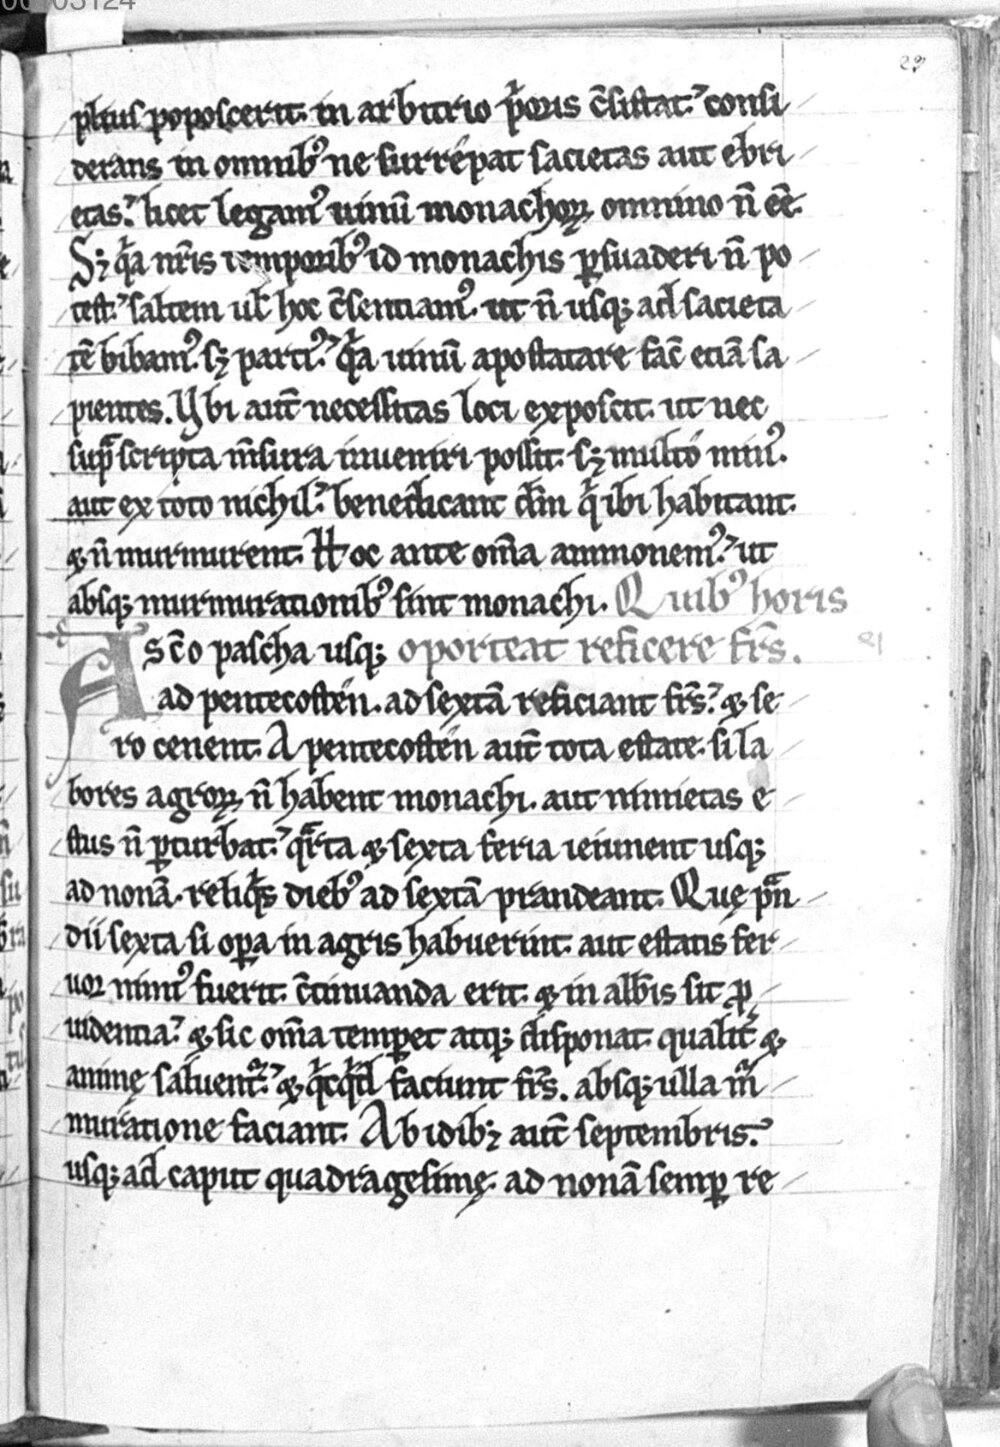 00003124
23
pl'ius poposcerit. in arbitrio p'oris c̄sistat. consi
derans in omnib; ne surrépat sacietas aut ebri
etas. licet legam' uinū monachoꝝ omnino n̄ eē.
Sꝫ qͥa nr̄is temporib; id monachis ꝑsuaderi n̄ po
test. saltem ul' hoc c̄sentiam'. ut n̄ usqꝫ ad sacieta
tē bibam'. sꝫ parti'. qͥa uinū apostatare fac̄ etiā sa
pientes. Vbi aut̄ necessitas loci exposcit. ut nec
sup̄scripta m̄sura inueniri possit. sꝫ multo min'.
aut ex toto nichil. benedicant dn̄m qͥ ibi habitant.
⁊ n̄ murmurent. Hoc ante om̄a ammonem'. ut
absqꝫ murmurationib; sint monachi. Quib' horis
A sc̄o pascha usqꝫ oporteat reficere fr̄s.
ad pentecosten. ad sextā reficiant fr̄s. ⁊ se
ro cenent. A pentecosten aut̄ tota estate. si la
bores agroꝝ n̄ habent monachi. aut nimietas e
stus n̄ ꝑturbat. qͣrta ⁊ sexta feria ieiunent usqꝫ
ad nonā. reliqͥs dieb; ad sextā prandeant. Quę pͣn
dii sexta si oꝑa in agris habuerint. aut estatis fer
uor nimi' fuerit. c̄tinuanda erit. ⁊ in abb̄is sit ꝓ
uidentia. ⁊ sic om̄a temꝑet atqꝫ disponat. qualit̄ ⁊
animę saluent'. ⁊ qͥcqͥd faciunt fr̄s. absqꝫ ulla m̄
muratione faciant. Ab idibꝫ aut̄ septembris.
usqꝫ ad caput quadragesimę. ad nonā semꝑ re